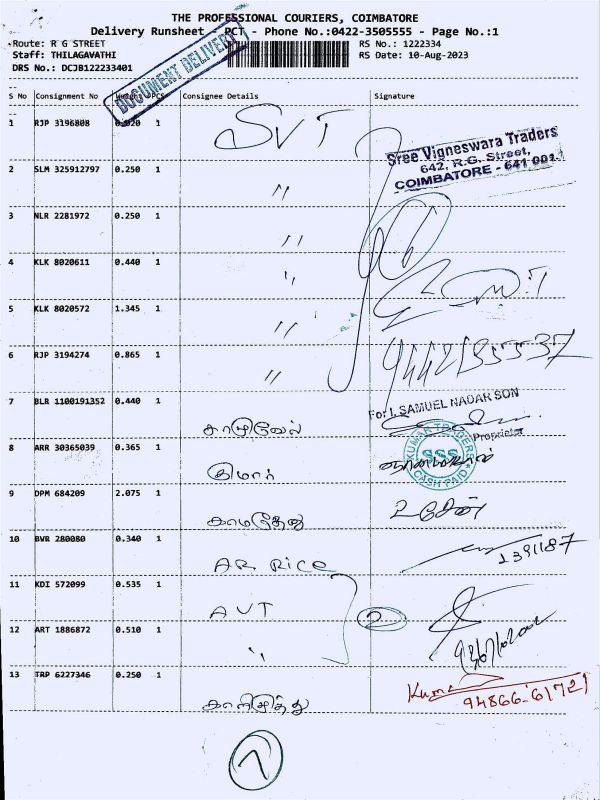 THE PROFESSIONAL COURIERS, COIMBATORE
Delivery Runsheet - PCT - Phone No.:0422-3505555 - Page No.:1
Route: R G STREET
RS No.: 1222334
Staff: THILAGAVATHI
RS Date: 10-Aug-2023
DRS No.: DCJB122233401
DOCUMENT DELIVERY
S No Consignment No Weight PCS Consignee Details Signature
1 RJP 3196808 1 SVT
Sree Vigneswara Traders
642, R.G. Street,
COIMBATORE - 641 001.
2 SLM 325912797 0.250 1 "
3 NLR 2281972 0.250 1 "
4 KLK 8020611 0.440 1 "
5 KLK 8020572 1.345 1 "
6 RJP 3194274 0.865 1 " 9442185537
7 BLR 1100191352 0.440 1 சாமுவேல்
For I. SAMUEL NADAR SON
Proprietor
8 ARR 30365039 0.365 1 குமார்
KUMAR TRADERS
SSS
CASH PAID
9 DPM 684209 2.075 1 காமதேனு
10 BVR 280080 0.340 1 AR RICE
11 KDI 572099 0.535 1 AVT 2
12 ART 1886872 0.510 1 "
13 TRP 6227346 0.250 1 காளிமுத்து Kumar
94866-61721
7